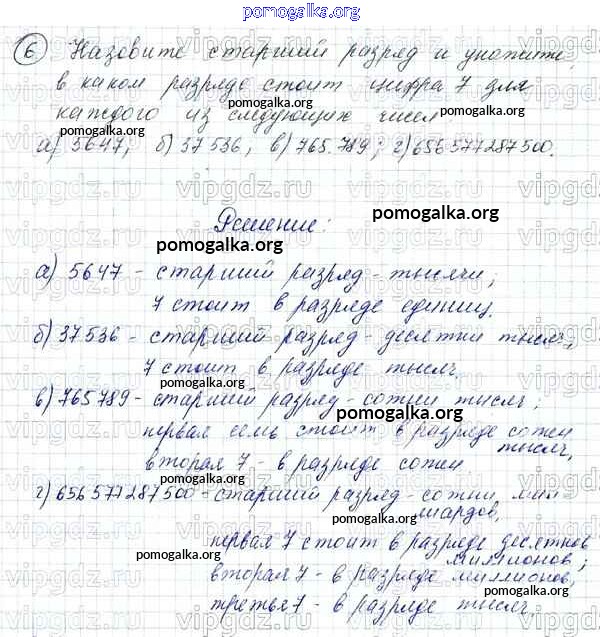 pomogalka.org
6 Назовите старший разряд и укажите,
в каком разряде стоит цифра 7 для
pomogalka.org
каждого из следующих чисел
pomogalka.org
pomogalka.org
а) 5647; б) 37 536; в) 765 789; г) 656 577 287 500.
pomogalka.org
pomogalka.org
Решение:
pomogalka.org
pomogalka.org
а) 5647 - старший разряд - тысячи;
pomogalka.org
7 стоит в разряде единиц.
pomogalka.org
б) 37 536 - старший разряд - десятки тысяч,
7 стоит в разряде тысяч.
pomogalka.org
в) 765 789 - старший разряд - сотни тысяч;
pomogalka.org
первая семь стоит в разряде сотен
тысяч,
вторая 7 - в разряде сотен.
pomogalka.org
г) 656 577 287 500 - старший разряд - сотни мил-
pomogalka.org
лиардов,
первая 7 стоит в разряде десятков
pomogalka.org
миллионов;
вторая 7 - в разряде миллионов,
pomogalka.org
третья 7 - в разряде тысяч.
pomogalka.org
vipgdz.ru